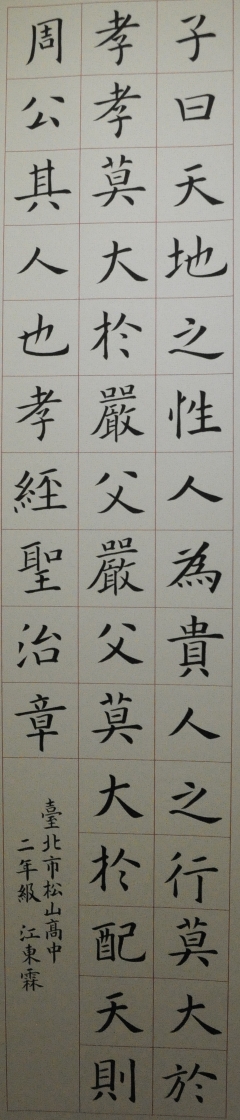 子曰天地之性人為貴人之行莫大於
孝孝莫大於嚴父嚴父莫大於配天則
周公其人也孝經聖治章
臺北市松山高中
二年級 江東霖